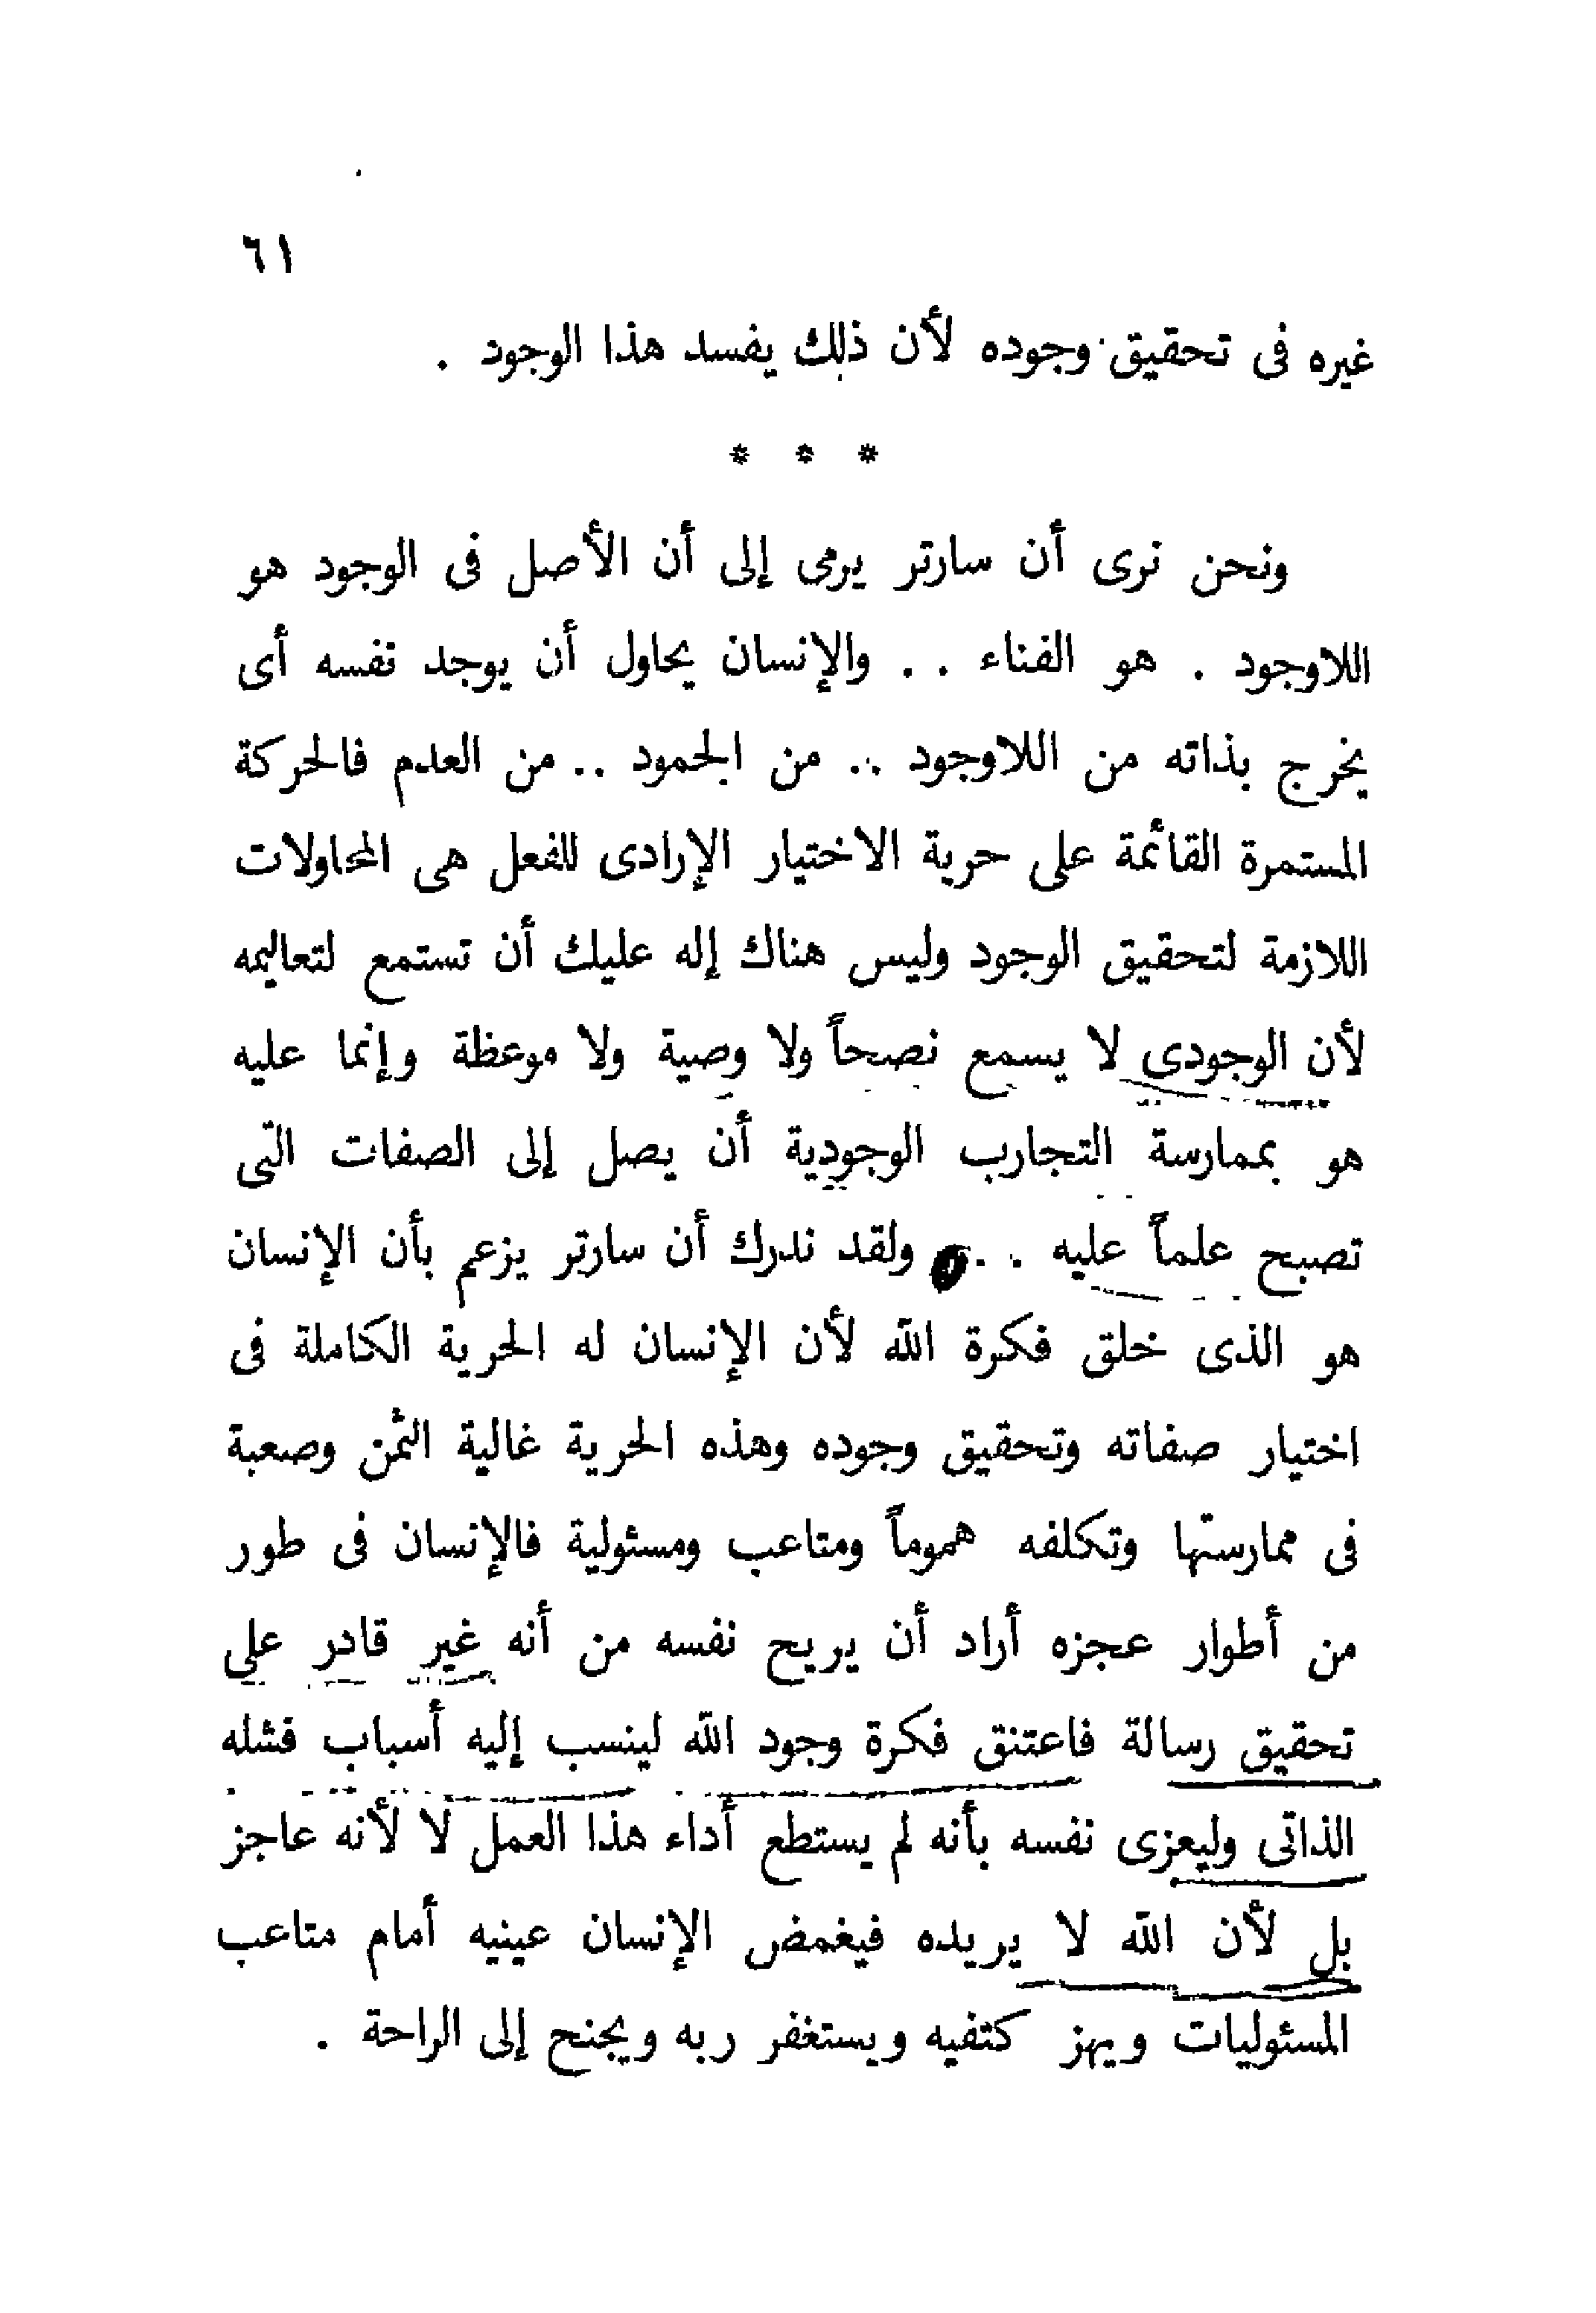 ٦١
غيره فى تحقيق وجوده لأن ذلك يفسد هذا الوجود .
* * *
ونحن نرى أن سارتر يرمى إلى أن الأصل فى الوجود هو
اللاوجود . هو الفناء . . والإنسان يحاول أن يوجد نفسه أى
يخرج بذاته من اللاوجود .. من الجمود .. من العدم فالحركة
المستمرة القائمة على حرية الاختيار الإرادى للفعل هى المحاولات
اللازمة لتحقيق الوجود وليس هناك إله عليك أن تستمع لتعاليمه
لأن الوجودى لا يسمع نصحاً ولا وصية ولا موعظة وإنما عليه
هو بممارسة التجارب الوجودية أن يصل إلى الصفات التى
تصبح علماً عليه . . ولقد ندرك أن سارتر يزعم بأن الإنسان
هو الذى خلق فكرة الله لأن الإنسان له الحرية الكاملة فى
اختيار صفاته وتحقيق وجوده وهذه الحرية غالية الثمن وصعبة
فى ممارستها وتكلفه هموماً ومتاعب ومسئولية فالإنسان فى طور
من أطوار عجزه أراد أن يريح نفسه من أنه غير قادر على
تحقيق رسالة فاعتنق فكرة وجود الله لينسب إليه أسباب فشله
الذاتى وليعزى نفسه بأنه لم يستطع أداء هذا العمل لا لأنه عاجز
بل لأن الله لا يريده فيغمض الإنسان عينيه أمام متاعب
المسئوليات ويهز كتفيه ويستغفر ربه ويجنح إلى الراحة .